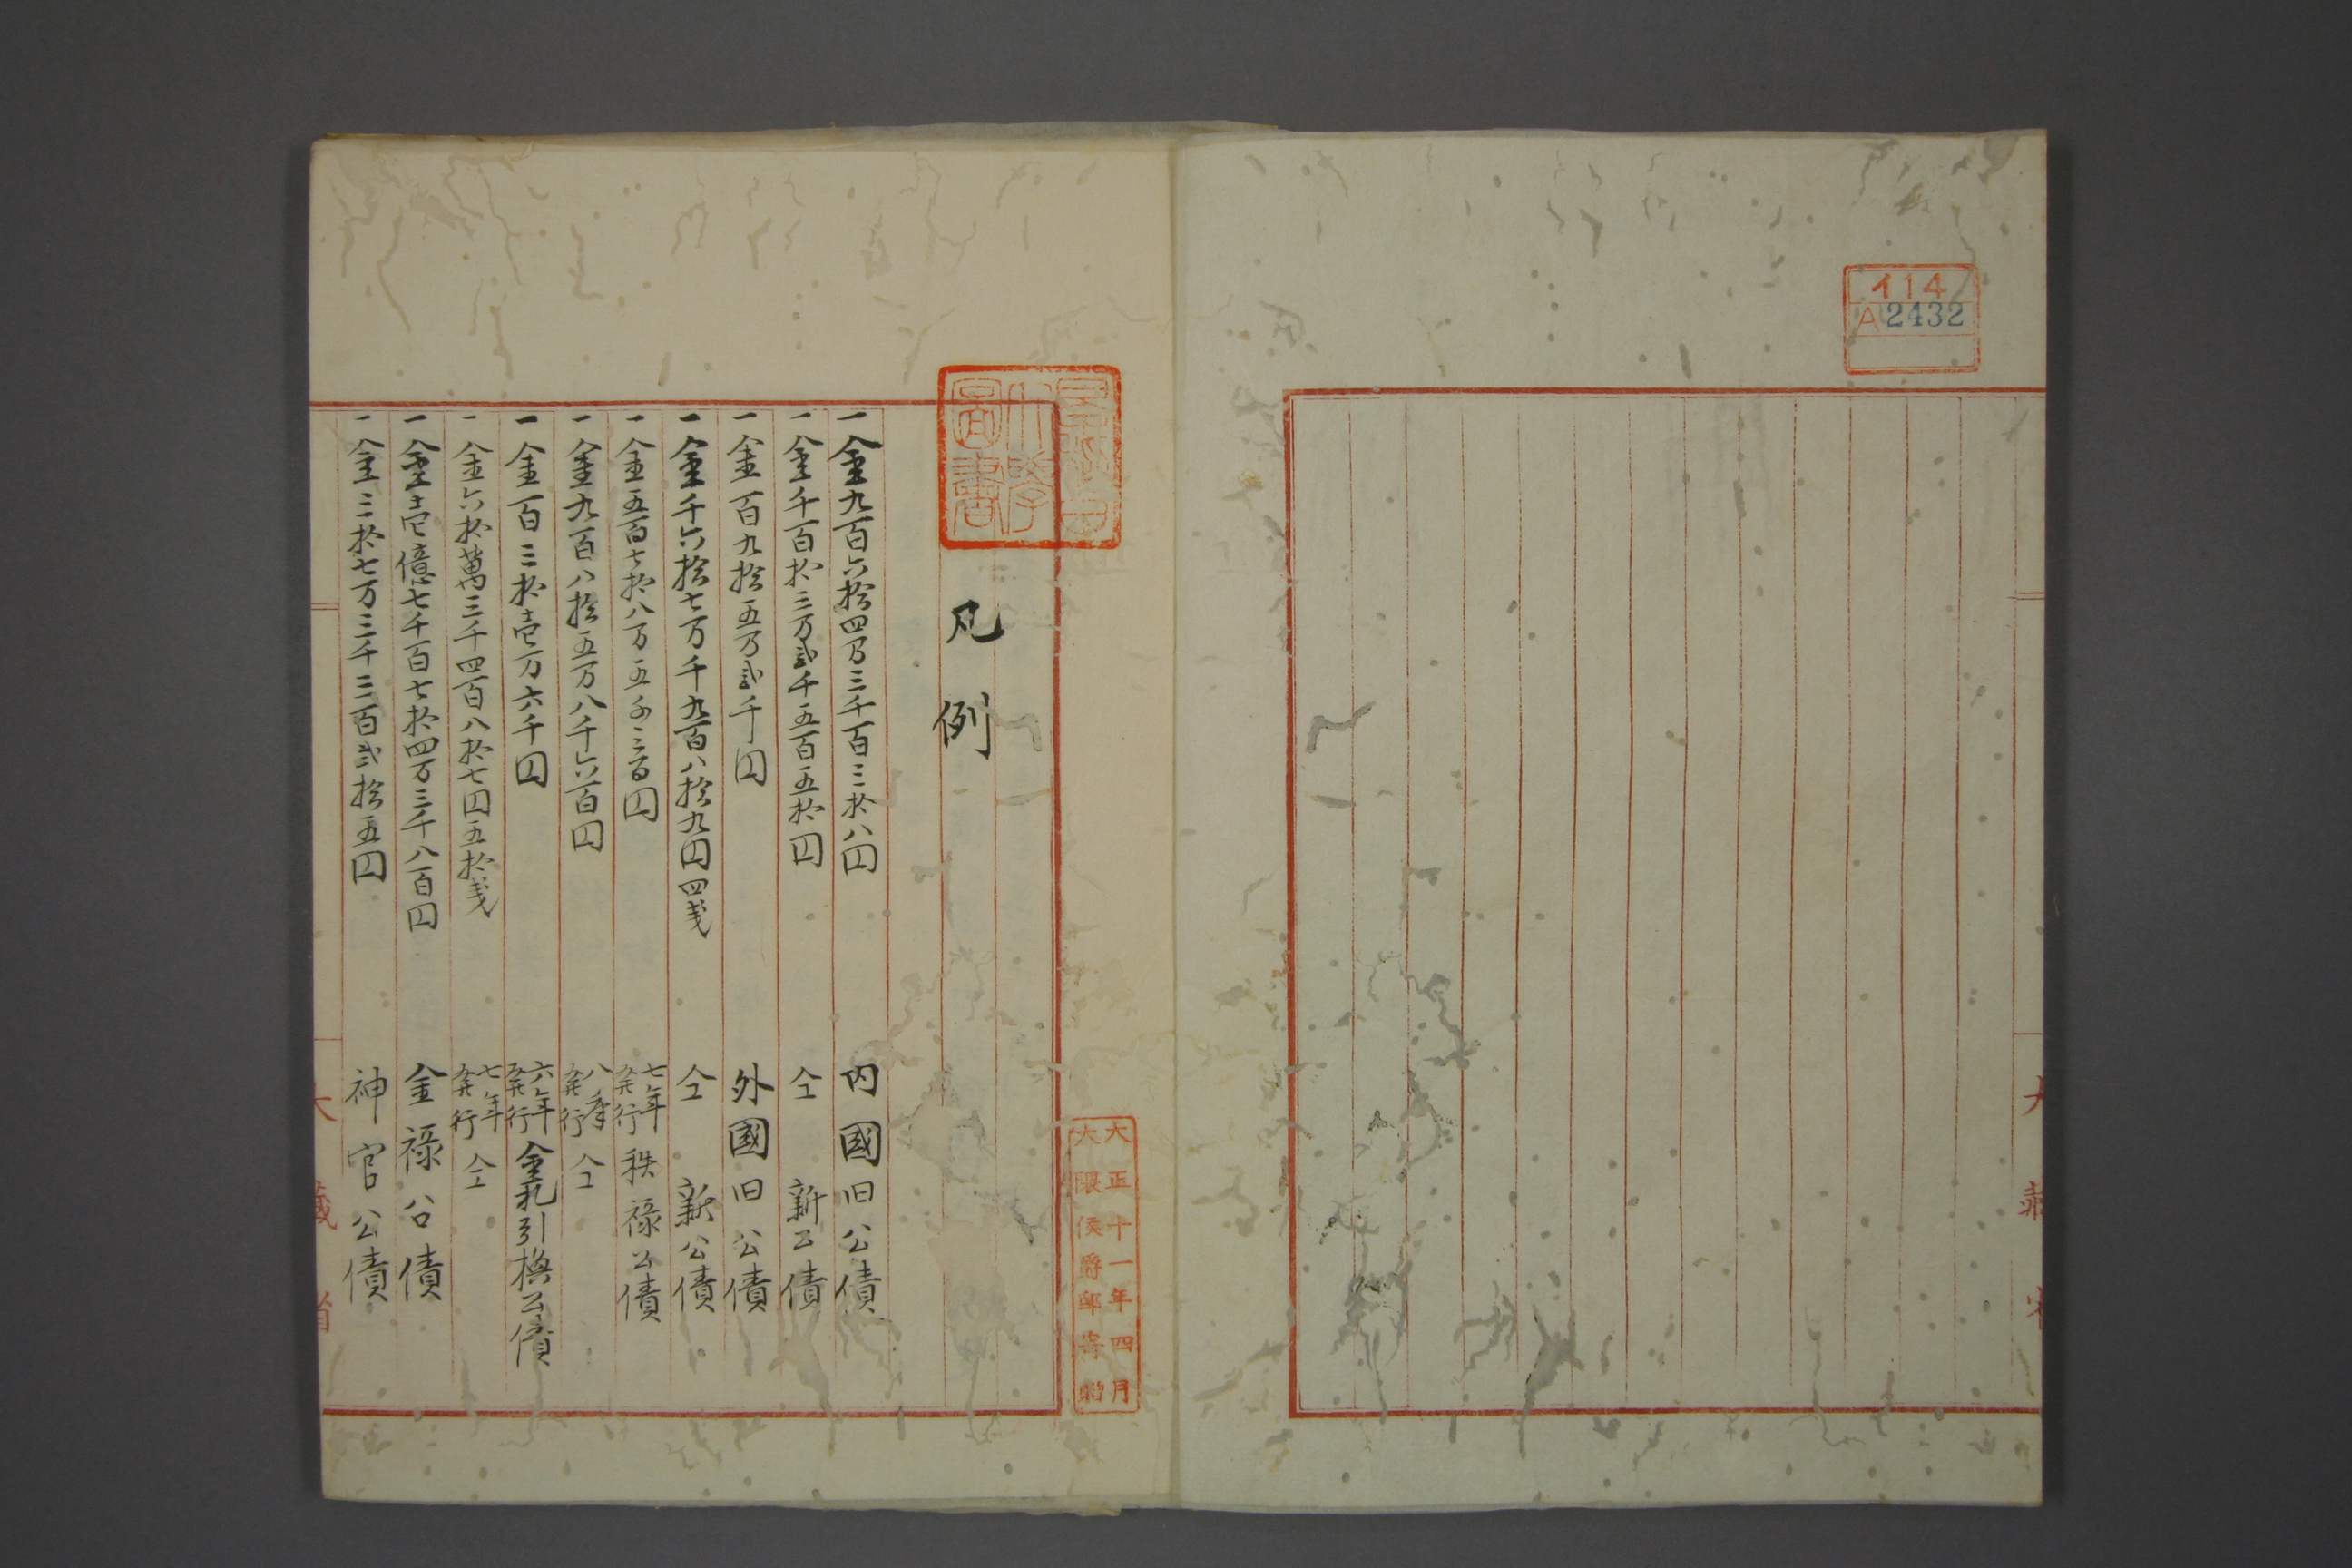 イ14
A2432
大藏省
早稻田大學圖書
大正十一年四月
大隈侯爵邸寄贈
凡例
一金九百六拾四万三千百三拾八円 内國旧公債
一金千百拾三万貳千五百五拾円 仝 新公債
一金百九拾五万貳千円 外國旧公債
一金千六拾七万千九百八拾九円四戋 仝 新公債
一金五百七拾八万五千三百円 七年発行 秩禄公債
一金九百八拾五万八千六百円 八年発行 仝
一金百三拾壱万六千円 六年発行 金札引換公債
一金六拾萬三千四百八拾七円五拾戋 七年発行 仝
一金壱億七千百七拾四万三千八百円 金禄公債
一金三拾七万三千三百弐拾五円 神官公債
大藏省